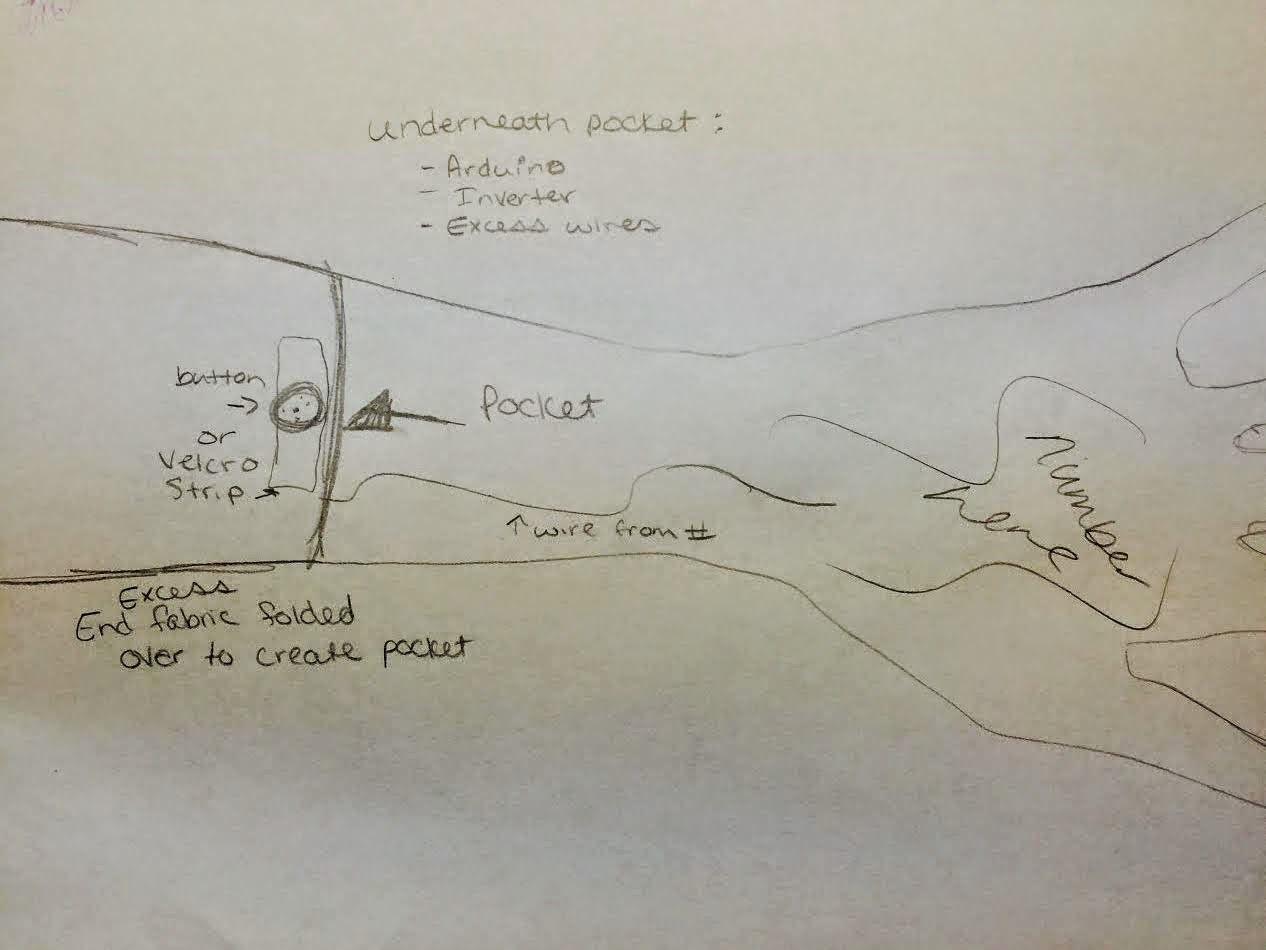 Underneath pocket :
- Arduino
- Inverter
- Excess wires
button
→
or
Velcro
Strip →
← Pocket
↑ wire from #
number
here
Excess
End fabric folded
over to create pocket